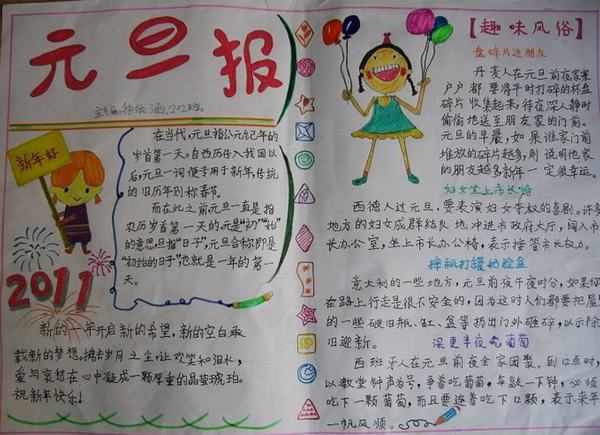 元旦报
新年好
在当代,元旦指公元纪年的
岁首第一天。自西历传入我国以
后,元旦一词便专用于新年,传统
的旧历年则称春节。
而在此之前元旦一直是指
农历岁首第一天的。元是"初""始"
的意思,旦指"日子",元旦合称即是
"初始的日子",也就是一年的第一
天。
2011
新的一年开启新的希望,新的空白承
载新的梦想。拂去岁月之尘,让欢笑和泪水,
爱与哀愁在心中凝成一颗厚重的晶莹琥珀。
祝新年快乐!
【趣味风俗】
盘碎片送朋友
丹麦人在元旦前夜家家
户户都要将平时打碎的杯盘
碎片收集起来,待夜深人静时
偷偷地送至朋友家的门前。
元旦的早晨,如果谁家门前
堆放的碎片越多,则说明他家
的朋友越多新年一定很幸运。
妇女坐上市长椅
西德人过元旦,要表演妇女夺权的喜剧。许多
地方的妇女成群结队地冲进市政府大厅,闯入市
长办公室,坐上市长办公椅,表示接管市长权力。
摔瓶打罐
意大利的一些地方,元旦前夜午夜时分,如果你
在路上行走是很不安全的,因为这时人们都要把屋
的一些硬旧瓶、缸、盆等扔出门外砸碎,以示除
旧迎新。
深更半夜吃葡萄
西班牙人在元旦前夜全家团聚。到12点时,
以教堂钟声为号,争着吃葡萄,每敲一下钟,必须
吃下一颗葡萄,而且要连着吃下12颗,表示来年
一帆风顺。